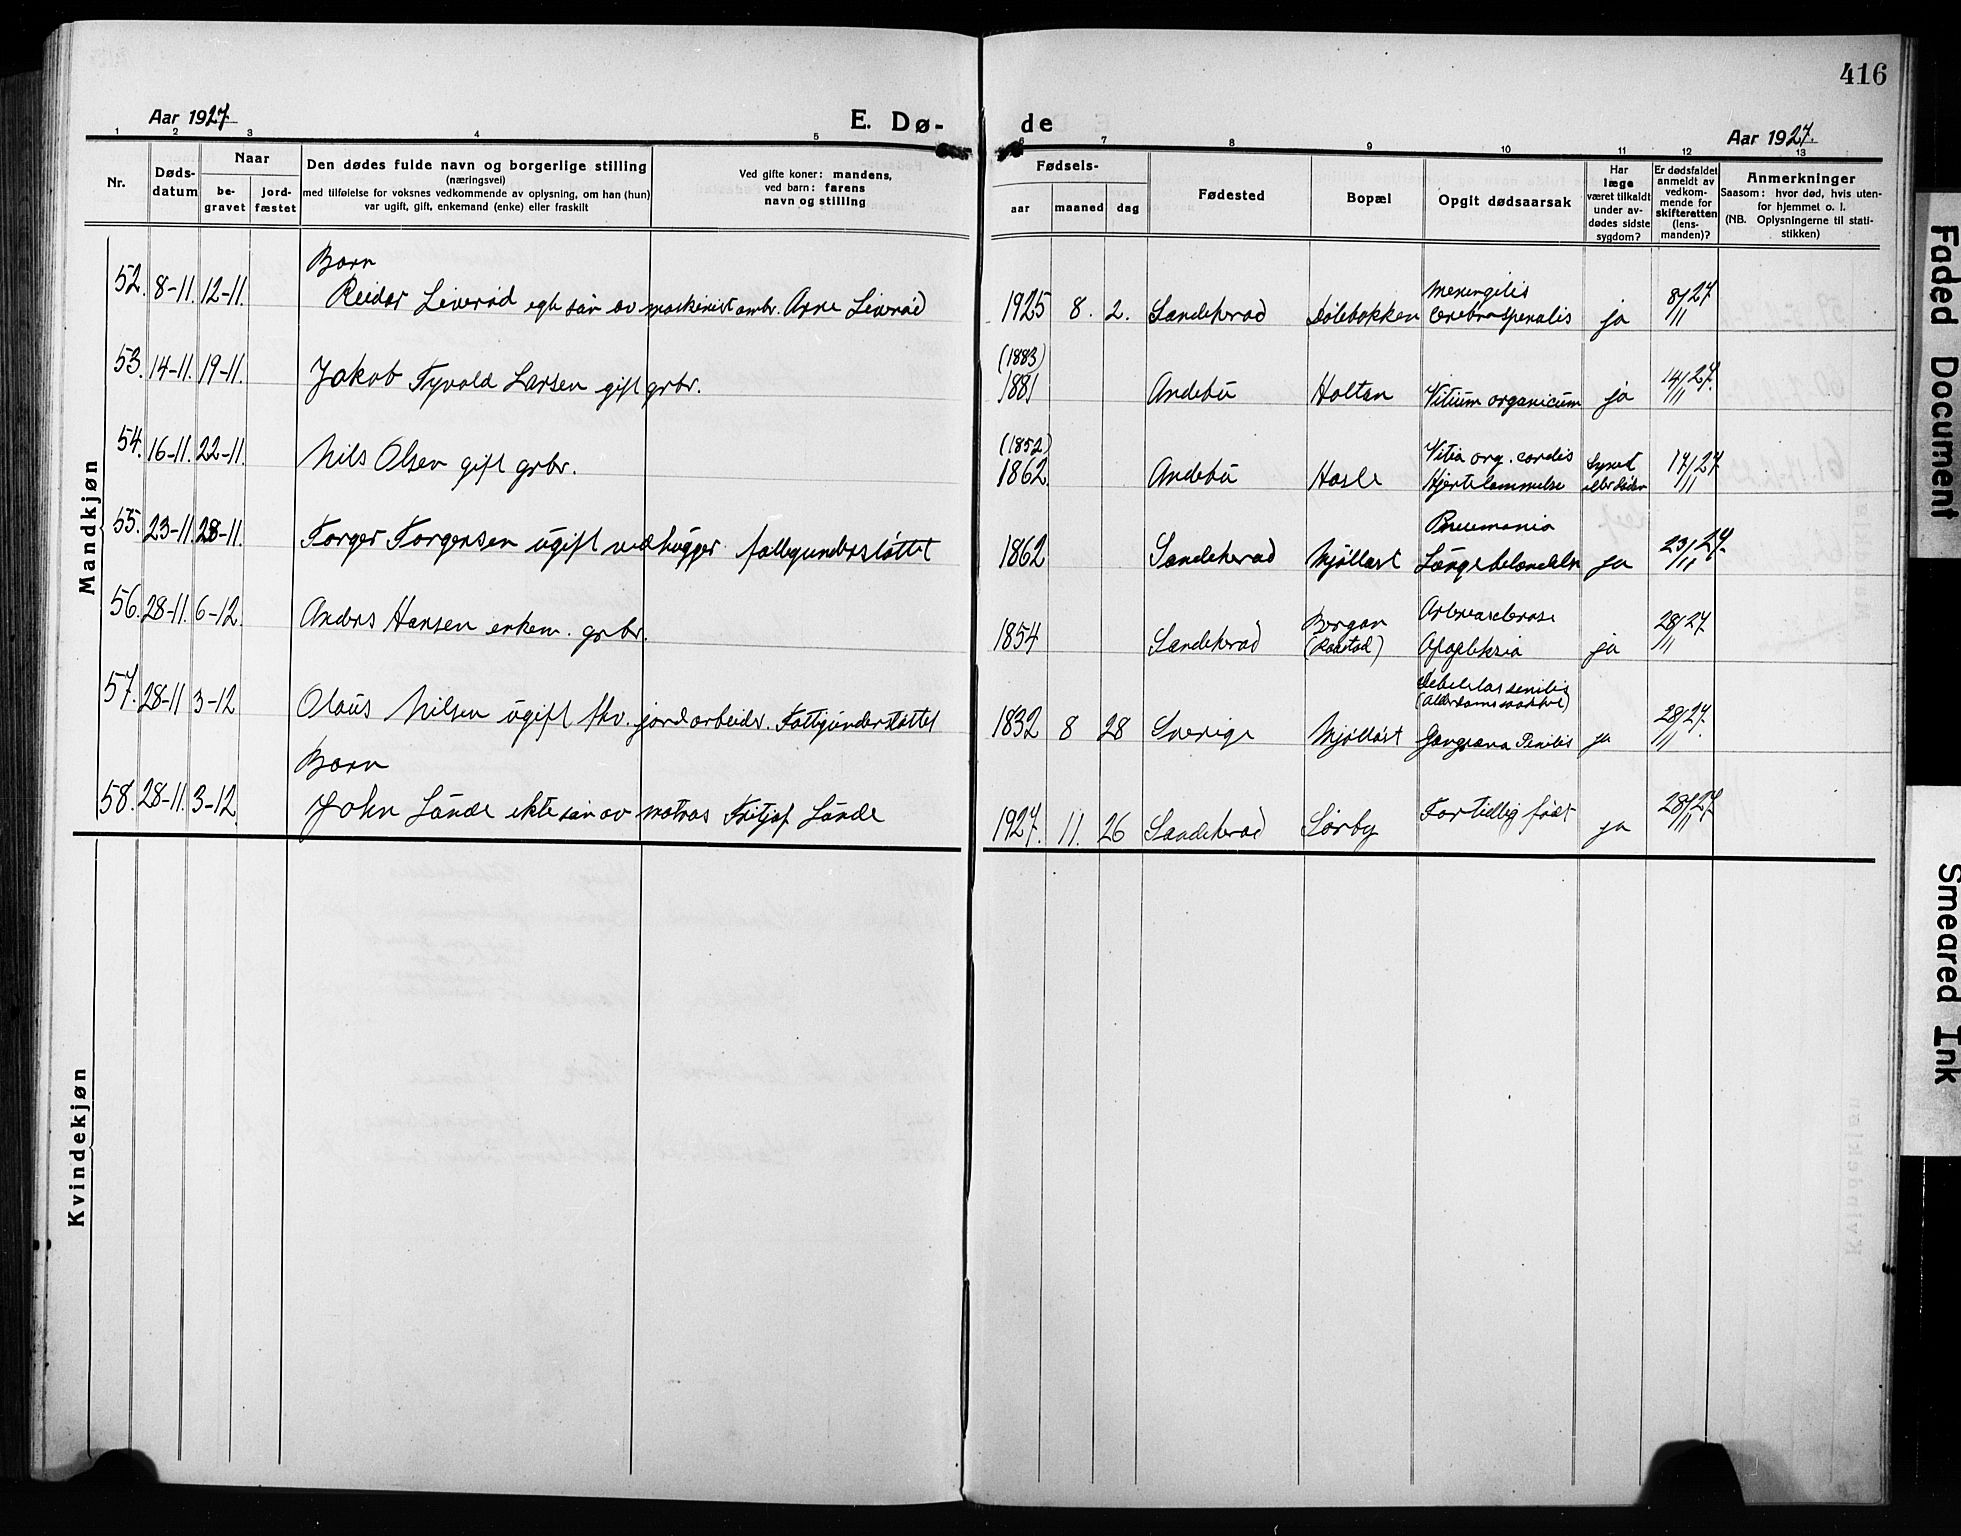 416
Aar 1927.
E. Dø-
de
Aar 1927.
1 2 3 4 5 6 7 8 9 10 11 12 13
Nr.
Døds-
datum
Naar
be-
gravet
jord-
fæstet
Den dødes fulde navn og borgerlige stilling
(næringsvei)
med tilføielse for voksnes vedkommende av oplysning, om han (hun)
var ugift, gift, enkemand (enke) eller fraskilt
Ved gifte koner: mandens,
ved barn: farens
navn og stilling
Fødsels-
aar
maaned
dag
Fødested
Bopæl
Opgit dødsaarsak
Har
læge
været tilkaldt
under av-
dødes sidste
sygdom?
Er dødsfaldet
anmeldt av
vedkom-
mende for
skifteretten
(lens-
manden)?
Anmerkninger
Saasom: hvor død, hvis uten-
for hjemmet o. l.
(NB. Oplysningerne til stati-
stikken)
Mandkjøn
Barn
52. 8-11 12-11. Reidar Liverød egte søn av maskinist ombr. Arne Liverød 1925 8. 2. Sandeherad Dølebakken Meningitis
Cerebrospinalis ja 8/11 27
53. 14-11. 19-11. Jakob Tyvald Larsen gift grbr. (1883)
1881 Andebu Holtan Vitium organicum ja 14/11 27.
54. 16-11. 22-11. Nils Olsen gift grbr. (1852)
1862 Andebu Hasle Vitia org. cordis
Hjertelammelse Synet
efter døden 17/11 27
55. 23-11. 28-11. Torger Torgersen ugift vedhugger fattigunderstøttet 1862 Sandeherad Mjølløst Pneumonia
Lungebetændelse ja 23/11 27.
56. 28-11. 6-12. Anders Hansen enkem. grbr. 1854 Sandeherad Bergan
(Raastad) Arteriosclerose
Apopleksia ja 28/11 27.
57. 28-11 3-12 Olaus Nilsen ugift fhv. jordarbeider. Fattigunderstøttet 1832 8 28 Sverige Mjølløst Debilitas senilis
(Alderdomssvakhet)
Gangræna Penilis ja 28/11 27.
Barn
58. 28-11. 3-12. John Lunde ekte søn av matros Fritjof Lunde 1927. 11. 26 Sandeherad Sørby For tidlig født ja 28/11 27.
Kvindekjøn
Faded Document
Smeared Ink